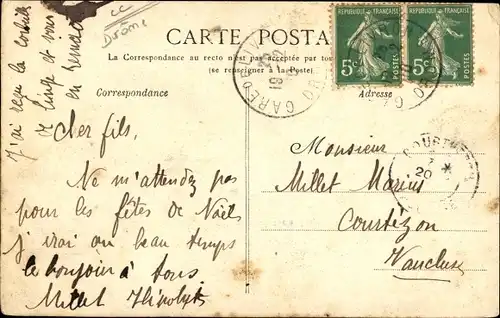 Drôme
CARTE POSTA
La Correspondance au recto n'est pas acceptée par tous
(se renseigner à la Poste)
Correspondance
Adresse
REPUBLIQUE FRANÇAISE
5c
POSTES
REPUBLIQUE FRANÇAISE
5c
POSTES
J'ai reçu la corbeille
le linge et vous
en remercie
Cher fils,
Ne m'attendez pas
pour les fêtes de Noël
j'irai au beau temps
le bonjour à tous
Millet Hipolyte
Monsieur
Millet Marius
Courtézon
Vaucluse
GARE D
LIV
20
COURTHEZ
20